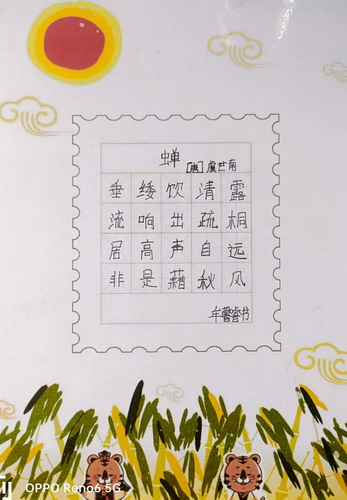 蝉
[唐]虞世南
垂緌饮清露
流响出疏桐
居高声自远
非是藉秋风
年馨睿书
OPPO Reno6 5G